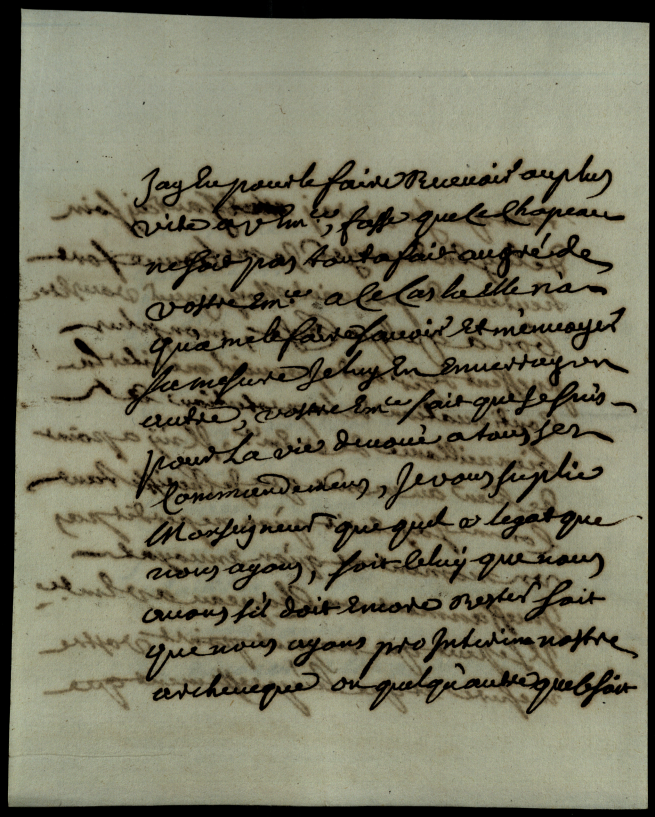 Jay Eu pour le faire Recevoir au plus
vite a v Em.ce, fasse que Le Chapeau
ne soit pas tout a fait au gré de
vostre Em.ce a Ce Cas la Elle n'a
qu'a me le faire savoir Et m'envoyer
sa mesure Je luy En Enverray un
autre, vostre Em.ce sait que Je suis
pour La vie devoué a tous ses
Commendemens, Je vous suplie
Monseigneur que quel vlegat que
nous ayons, soit Celuy que nous
avons s'il doit Encore Rester soit
que nous ayons pro Interim nostre
archeveque ou quelqu'autre que le soit